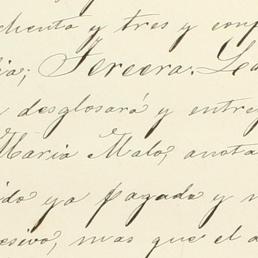 chenta y tres y conf
ia; Tercera. Le
desglosará y entre
Maria Malo, anota
ido ya pagado y n
esivo, mas que el a